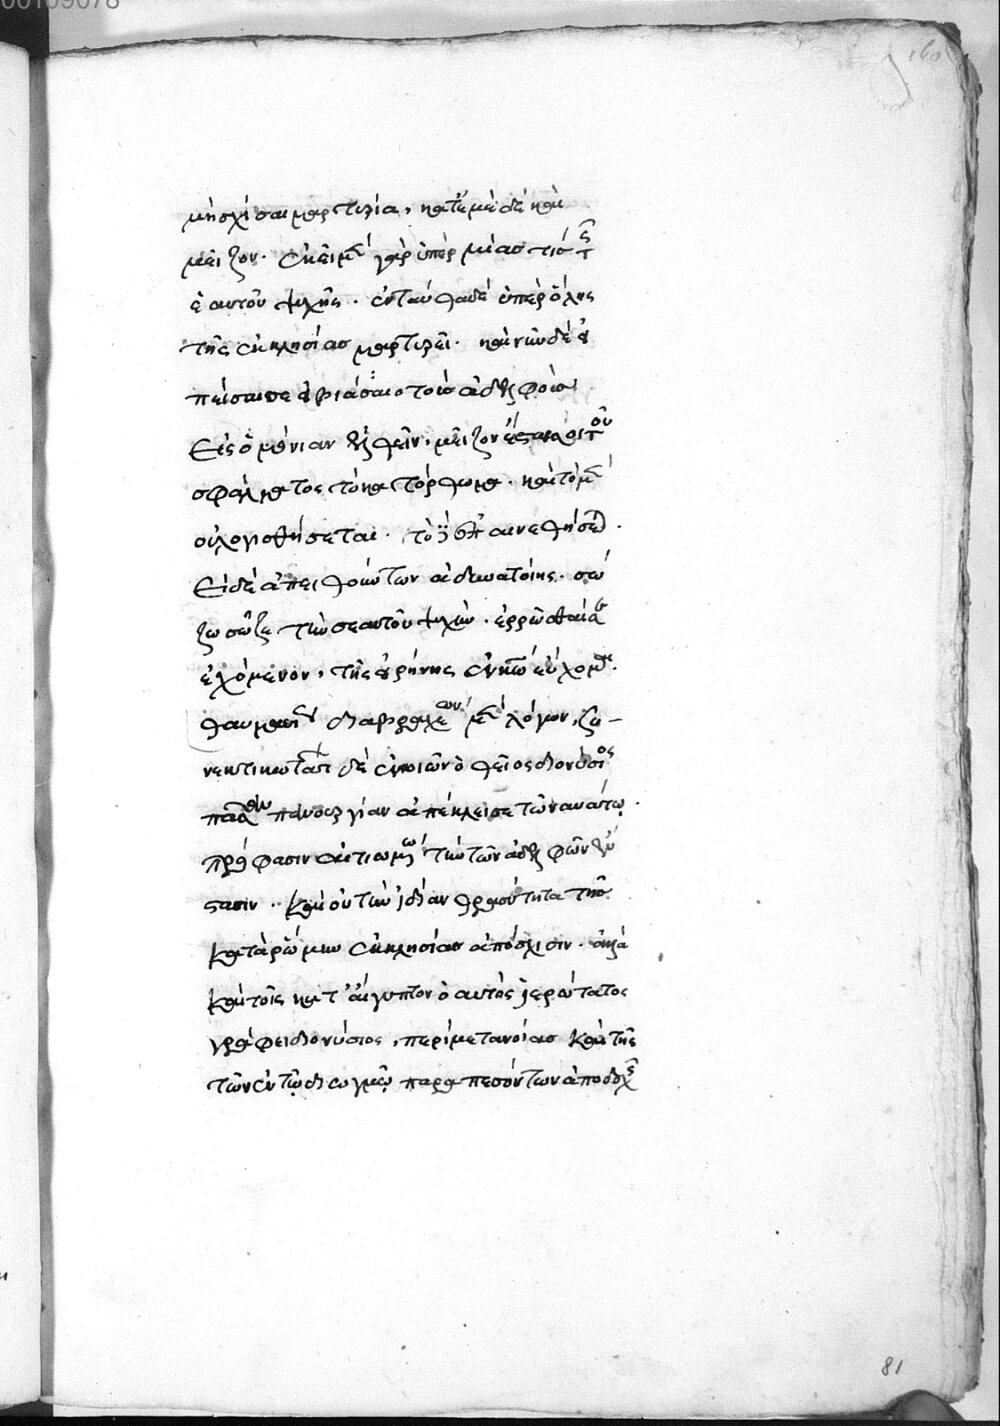 μὴ σχίσαι μαρτυρία, κατ' ἐμὲ δὲ καὶ
μεῖζον. ἐκεῖ μὲν γὰρ ὑπὲρ μιᾶσ τισ τῆς
ἑαυτοῦ ψυχῆς. ἐνταύθα δὲ ὑπὲρ ὅλης
τῆς ἐκκλησίασ μαρτυρεῖ. καὶ νῦν δὲ εἰ
πείσαις ἢ βιάσαιο τοὺσ ἀδελφοὺσ
εἰς ὁμόνιαν ἐλθεῖν, μεῖζον ἔσται σοι τοῦ
σφάλματος τὸ κατόρθωμα. καὶ τὸ μὲν
οὐ λογισθήσεται. τὸ δὲ ἐπαινεθήσεται.
εἰ δὲ ἀπειθούντων ἀδυνατοίης. σώ
ζω σῶζε τὴν σεαυτοῦ ψυχήν. ἐρρῶσθαί σε
ἐχόμενον, τῆς εἰρήνης ἐν κυρίῳ εὔχομαι.
διὰ βραχέων μὲν λόγων, ζυ-
δὲ ἐκποιῶν ὁ θεῖος διονύσιος
πᾶσαν πανουργίαν ἀπέκλεισε τῶν ναυάτῳ.
πρόφασιν τὴν τῶν ἀδελφῶν ἔν
στασιν. καὶ οὐ τὴν ἰδίαν θρασύτητα τῆσ
κατὰ ῥώμην ἐκκλησίασ ἀπόσχισιν. ἀλλὰ
καὶ τοῖς κατ' αἴγυπτον ὁ αυτὸς ἱερώτατος
γράφει διονύσιος, περὶ μετανοίασ καὶ τῆς
τῶν ἐν τῷ διωγμῷ παραπεσόντων ἀποδοχῆς